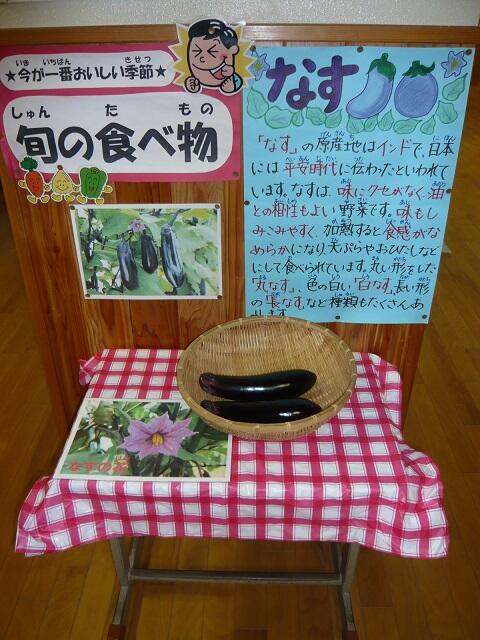 ★今が一番おいしい季節★
いま いちばん きせつ
しゅん た もの
旬の食べ物
なす
「なす」の原産地はインドで、日本
には平安時代に伝わったといわれて
います。なすは、味にクセがなく、油
との相性もよい野菜です。味もし
みこみやすく、加熱すると食感がな
めらかになり、天ぷらやおひたしなど
にして食べられています。丸い形をした
「丸なす」、色の白い「白なす」、長い形
の「長なす」など種類もたくさんあ
ります。
なすの花